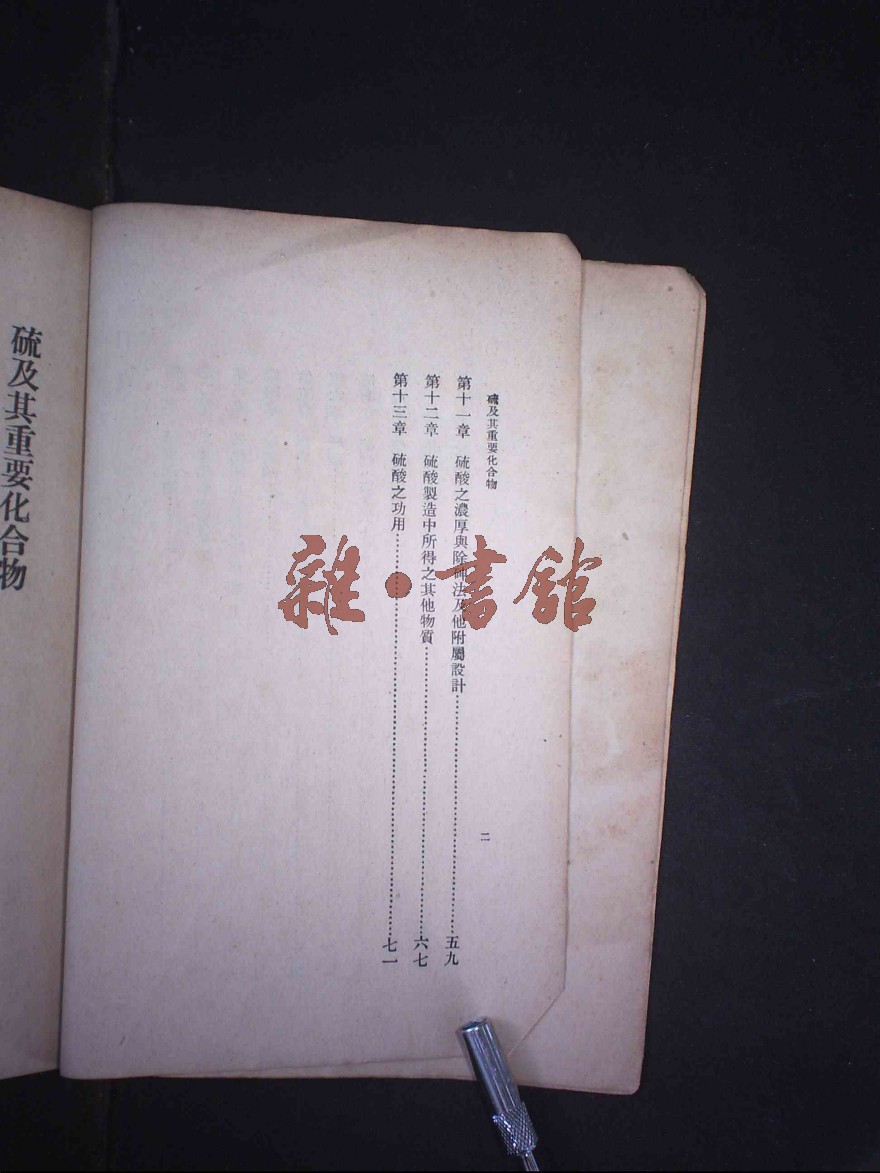 硫及其重要化合物
二
第十一章 硫酸之濃厚與除砒法及他附屬設計……五九
第十二章 硫酸製造中所得之其他物質……六七
第十三章 硫酸之功用……七一
雜·書館
硫及其重要化合物